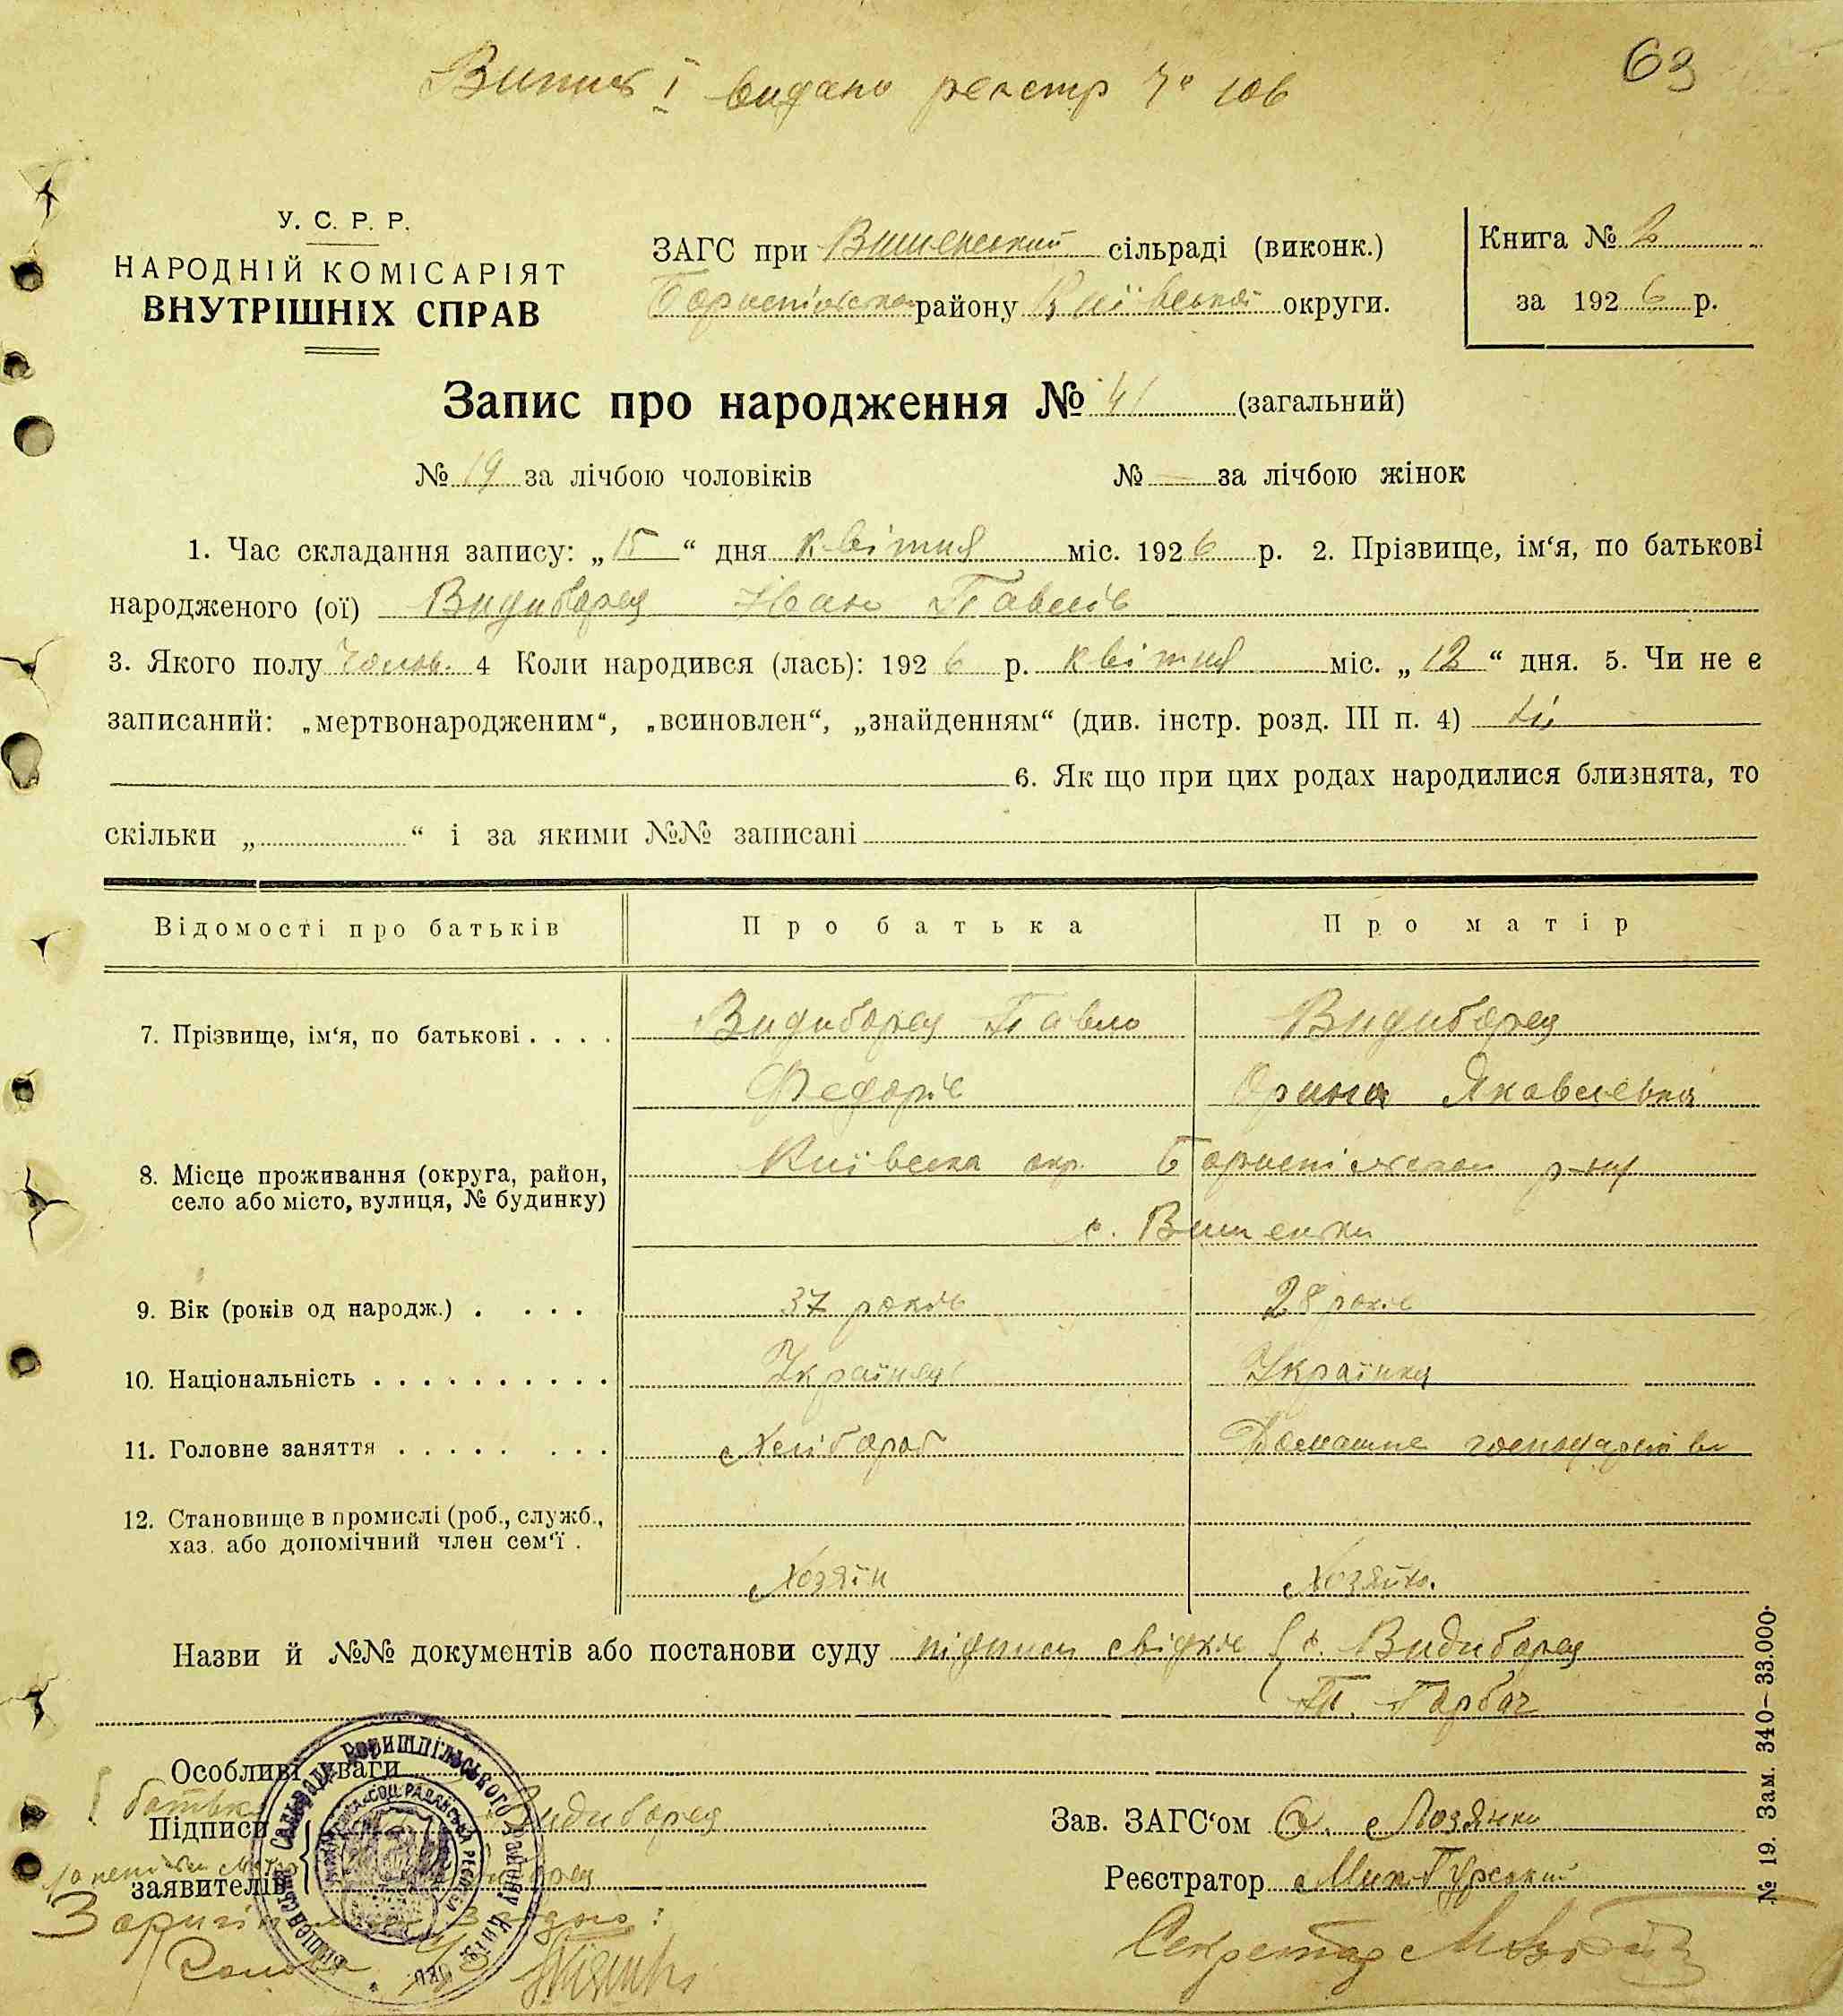 Випис І видано реєстр № 106
63
У. С. Р. Р.
НАРОДНІЙ КОМІСАРІЯТ
ВНУТРІШНІХ СПРАВ
ЗАГС при Вишенський сільраді (виконк.)
Бориспільського району Київської округи.
Книга № 2
за 1926 р.
Запис про народження № 41 (загальний)
№ 19 за лічбою чоловіків № — за лічбою жінок
1. Час складання запису: „15“ дня квітня міс. 1926 р. 2. Прізвище, ім‘я, по батькові
народженого (ої) Видиборец Іван Павлів
3. Якого полу Чолов. 4 Коли народився (лась): 1926 р. квітня міс. „12“ дня. 5. Чи не є
записаний: „мертвонародженим“, „всиновлен“, „знайденням“ (див. інстр. розд. III п. 4) Ні
6. Як що при цих родах народилися близнята, то
скільки „ “ і за якими №№ записані
Відомості про батьків Про батька Про матір
7. Прізвище, ім‘я, по батькові . . . . Видиборец Павло Видиборец
Федорів Орина Яковлевна
8. Місце проживання (округа, район, Київська окр. Бориспільськой р-ну
село або місто, вулиця, № будинку)
с. Вишеньки
9. Вік (років од народж.) . . . . 37 років 28 років
10. Національність . . . . . . . . . . Українець Українка
11. Головне заняття . . . . . . . . Хлібороб Домашне господарство
12. Становище в промислі (роб., служб.,
хаз. або допомічний член сем‘ї .
Хозяїн Хозяйка.
Назви й №№ документів або постанови суду підписи свідків Видиборец
П. Горбач
Особливі уваги
батьк
Підписи Видиборец
Зав. ЗАГС‘ом Лозянко
заявителів
Реєстратор
З оригіналом згідно:
Голова
Секретар
№ 19. Зам. 340—33.000.